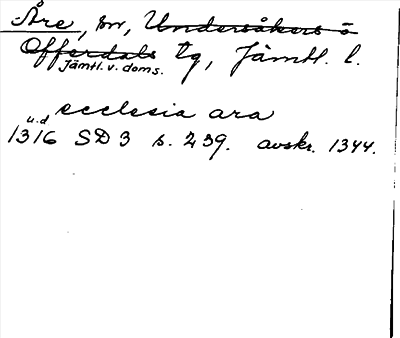 Åre, sn, Undersåkers o
Offerdals tg, Jämtl. l.
Jämtl. v. doms.
ecclesia ara
u.d
1316 SD 3 s. 239. avskr. 1344.